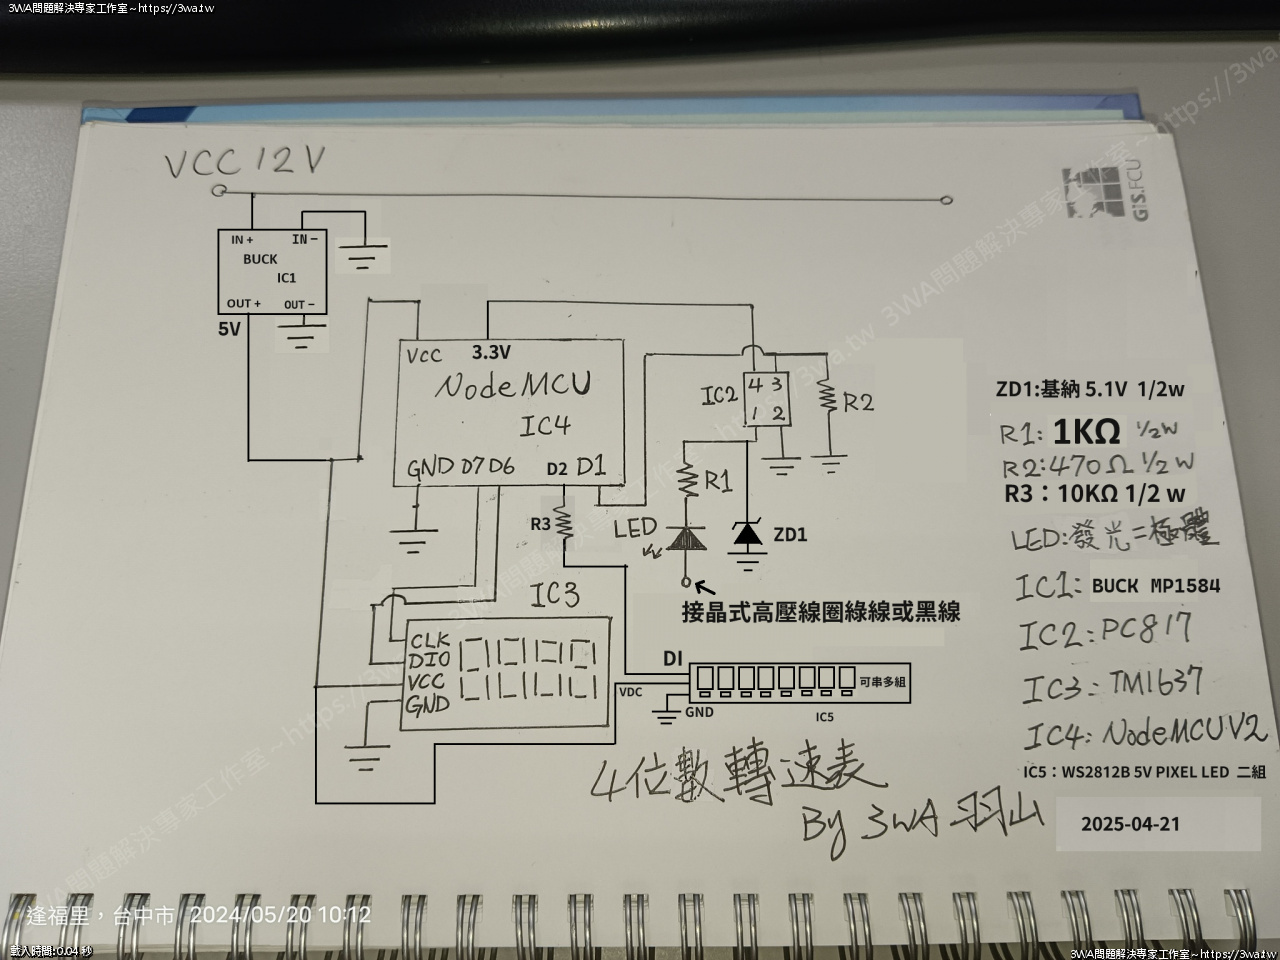 3WA問題解決專家工作室~https://3wa.tw
3WA問題解決專家工作室~https://3wa.tw
GIS.FCU
VCC 12V
IN + IN −
BUCK
IC1
OUT + OUT −
5V
VCC 3.3V
NodeMCU
IC4
GND D7 D6 D2 D1
IC2
4 3
1 2
R2
R1
R3
LED
ZD1
接晶式高壓線圈綠線或黑線
IC3
CLK
DIO
VCC
GND
DI
VDC
GND
可串多組
IC5
ZD1:基納 5.1V 1/2w
R1: 1KΩ 1/2W
R2:470Ω 1/2W
R3:10KΩ 1/2 w
LED:發光二極體
IC1: BUCK MP1584
IC2:PC817
IC3:TM1637
IC4:NodeMCUV2
IC5:WS2812B 5V PIXEL LED 二組
4位數轉速表
By 3WA 羽山
2025-04-21
3WA問題解決專家工作室~https://3wa.tw
逢福里,台中市 2024/05/20 10:12
載入時間:0.04 秒
3WA問題解決專家工作室~https://3wa.tw